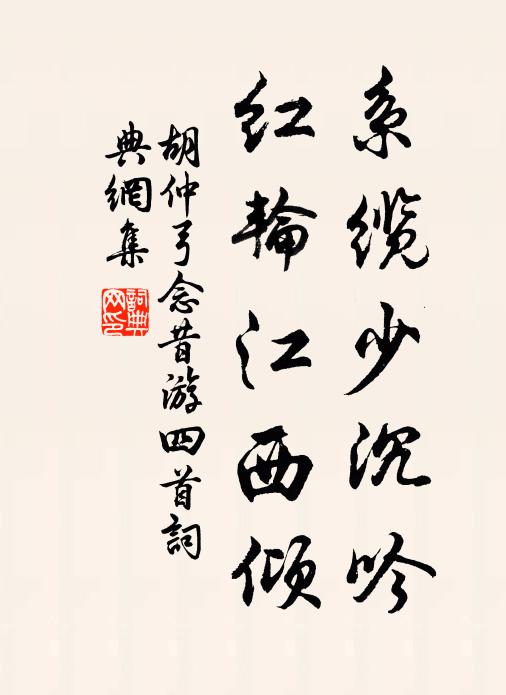 系缆少沉吟
红轮江西倾
胡仲弓念昔游四首詞
典網集
詞典網印